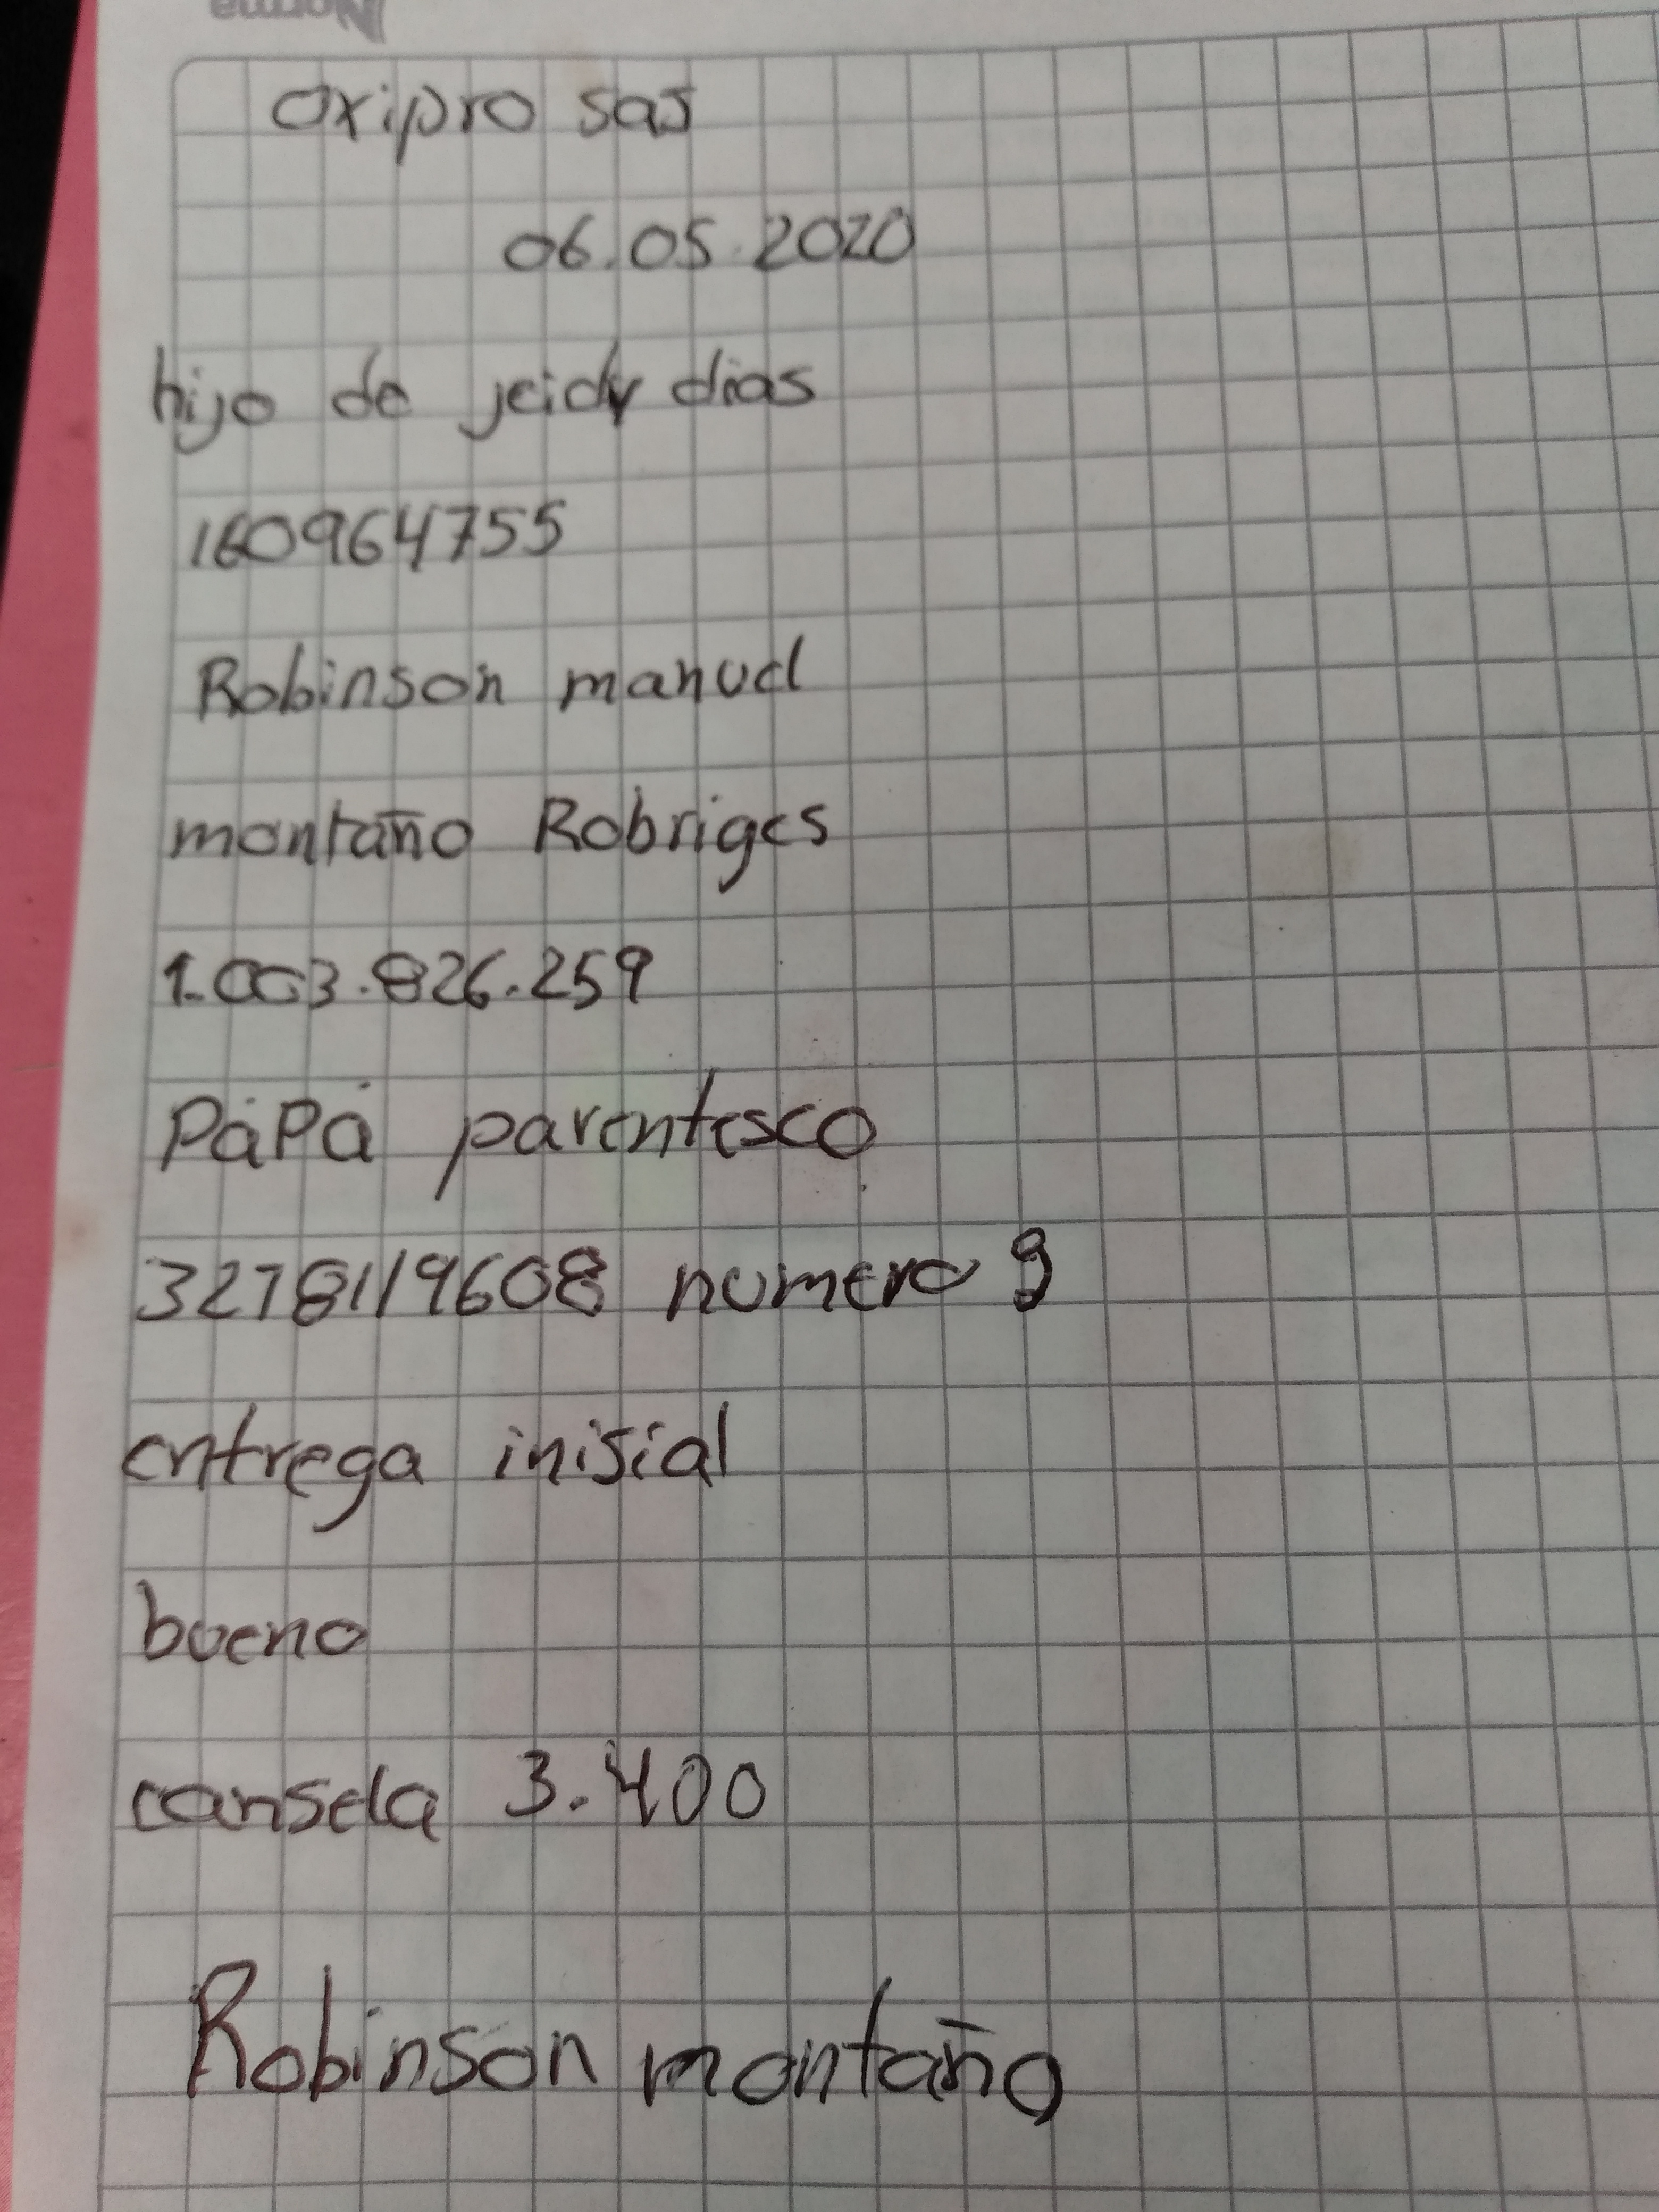 Norma
oxipro sas
06.05.2020
hijo de jeidy dias
160964755
Robinson manuel
montaño Robriges
1.003.826.259
PáPá parentesco
3278119608 numero 9
entrega inisial
bueno
cansela 3.400
Robinson montaño